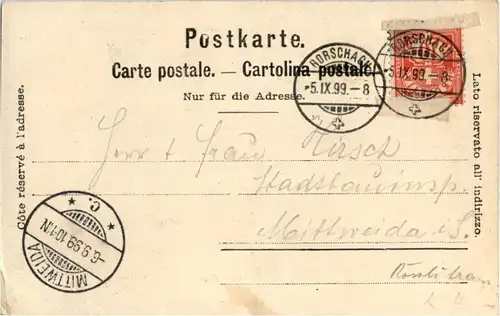 Postkarte.
Carte postale. — Cartolina postale.
Nur für die Adresse.
RORSCHACH
*5.IX.99.-8
RORSCHACH
5.IX.99.-8
Côte réservé à l'adresse.
Lato riservato all' indirizzo.
Herr & Frau Hirsch
Stadtbauinsp.
Mittweida i. S.
MITTWEIDA
-6.9.99.10-11N
* C. *